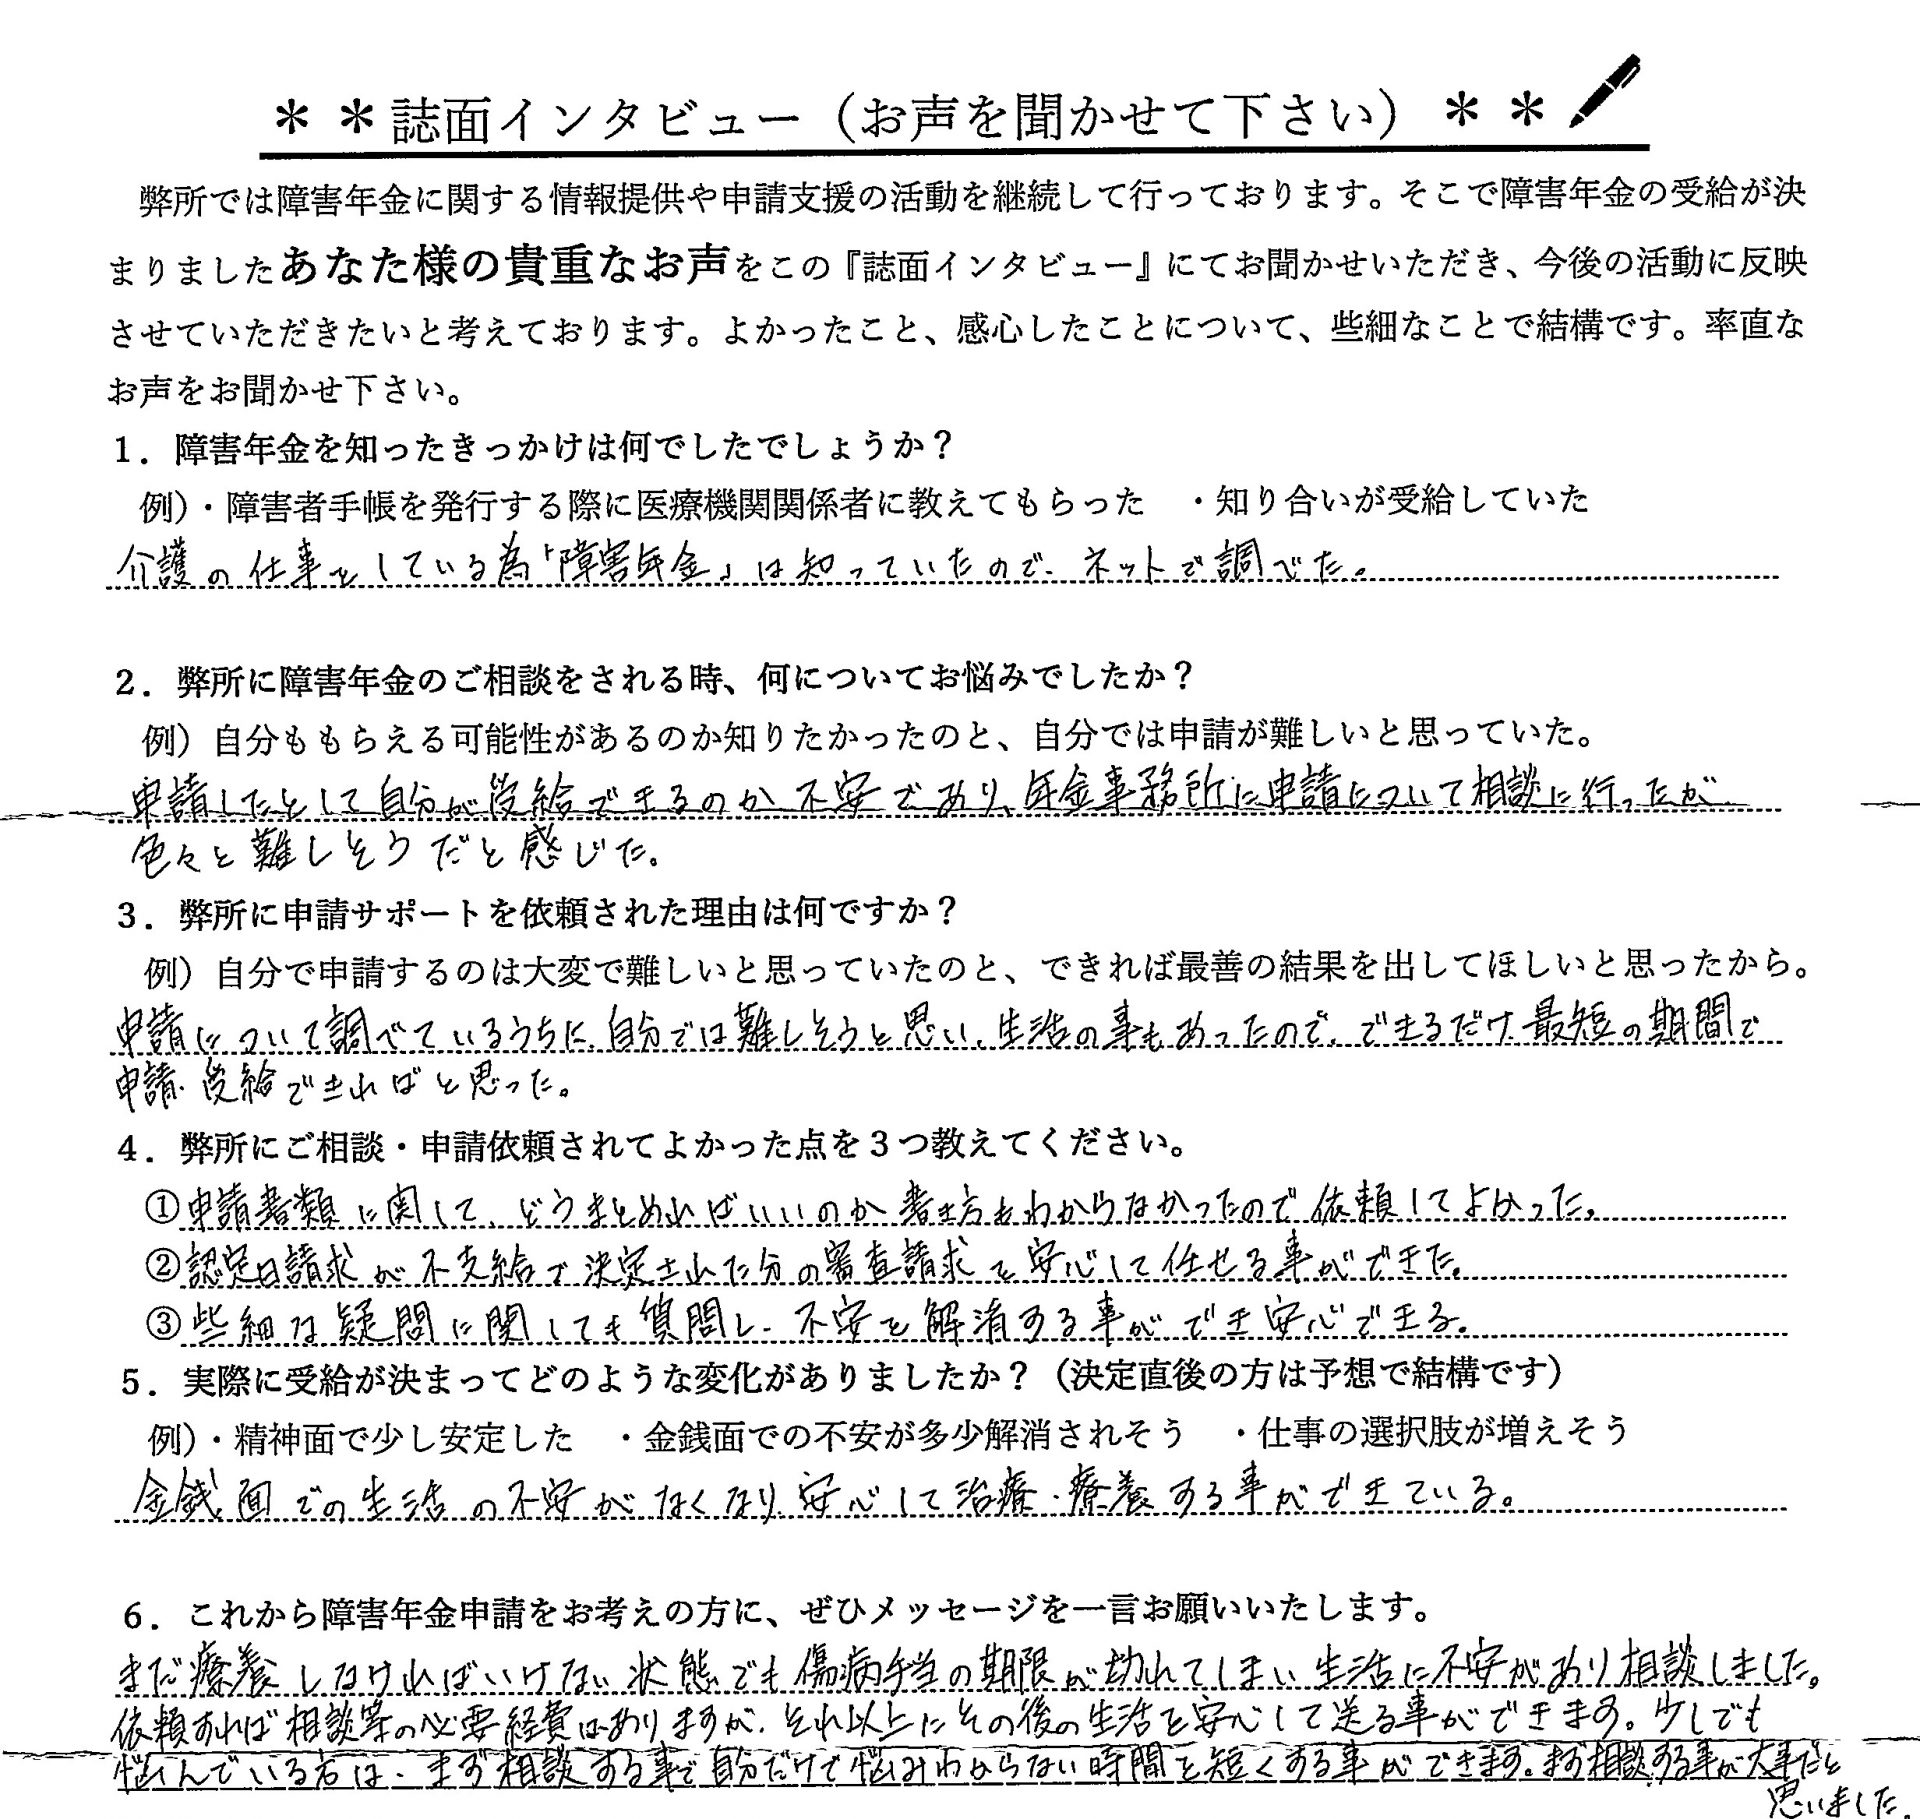 ＊＊誌面インタビュー（お声を聞かせて下さい）＊＊
弊所では障害年金に関する情報提供や申請支援の活動を継続して行っております。そこで障害年金の受給が決
まりましたあなた様の貴重なお声をこの『誌面インタビュー』にてお聞かせいただき、今後の活動に反映
させていただきたいと考えております。よかったこと、感心したことについて、些細なことで結構です。率直な
お声をお聞かせ下さい。
1．障害年金を知ったきっかけは何でしたでしょうか？
例）・障害者手帳を発行する際に医療機関関係者に教えてもらった　・知り合いが受給していた
介護の仕事をしている為「障害年金」は知っていたので、ネットで調べた。
2．弊所に障害年金のご相談をされる時、何についてお悩みでしたか？
例）自分ももらえる可能性があるのか知りたかったのと、自分では申請が難しいと思っていた。
申請したとして自分が受給できるのか不安であり、年金事務所に申請について相談に行ったが
色々と難しそうだと感じた。
3．弊所に申請サポートを依頼された理由は何ですか？
例）自分で申請するのは大変で難しいと思っていたのと、できれば最善の結果を出してほしいと思ったから。
申請について調べているうちに、自分では難しそうと思い、生活の事もあったので、できるだけ最短の期間で
申請、受給できればと思った。
4．弊所にご相談・申請依頼されてよかった点を３つ教えてください。
①申請書類に関して、どうまとめればいいのか書き方もわからなかったので依頼してよかった。
②認定日請求が不支給で決定された分の審査請求を安心して任せる事ができた。
③些細な疑問に関しても質問し、不安を解消する事ができ安心できる。
5．実際に受給が決まってどのような変化がありましたか？（決定直後の方は予想で結構です）
例）・精神面で少し安定した　・金銭面での不安が多少解消されそう　・仕事の選択肢が増えそう
金銭面での生活の不安がなくなり、安心して治療・療養する事ができている。
6．これから障害年金申請をお考えの方に、ぜひメッセージを一言お願いいたします。
まだ療養しなければいけない状態でも傷病手当の期限が切れてしまい生活に不安があり相談しました。
依頼すれば相談等の必要経費はありますが、それ以上にその後の生活を安心して送る事ができます。少しでも
悩んでいる方は、まず相談する事で自分だけで悩みわからない時間を短くする事ができます。まず相談する事が大事だと
思いました。